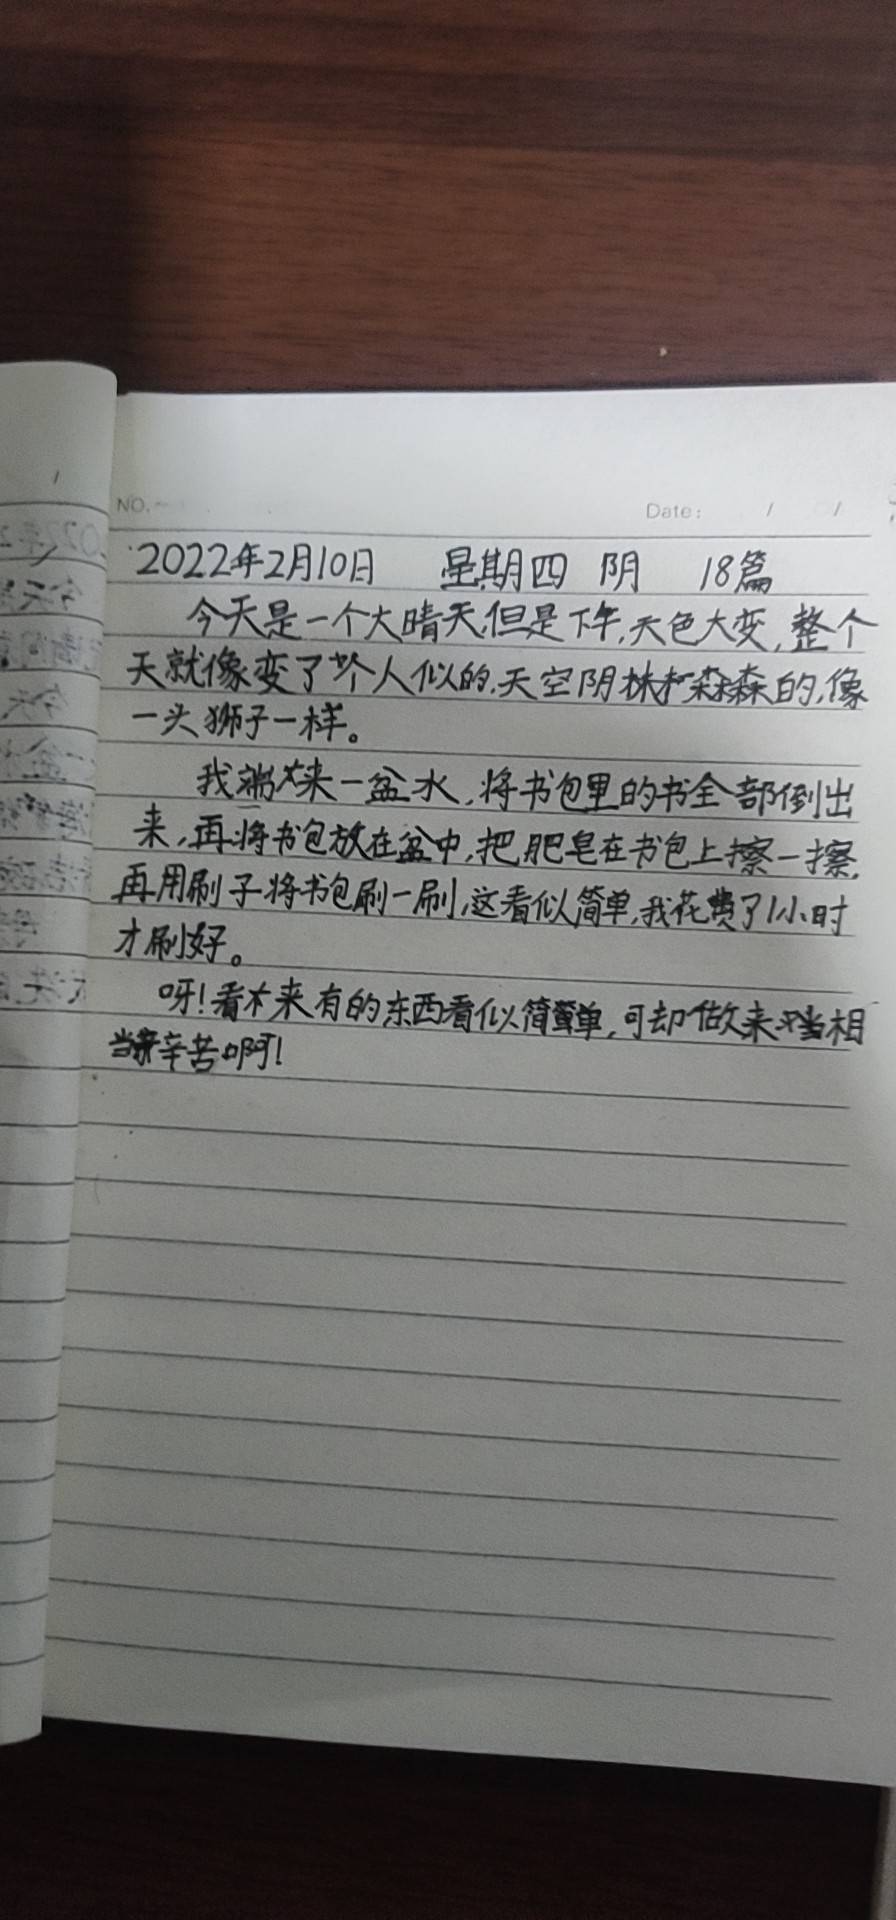 NO.
Date: / /
2022年2月10日 星期四 阴 18篇
今天是一个大晴天,但是下午,天色大变,整个
天就像变了个人似的,天空阴森森的,像
一头狮子一样。
我端来一盆水,将书包里的书全部倒出
来,再将书包放在盆中,把肥皂在书包上擦一擦,
再用刷子将书包刷一刷,这看似简单,我花费了1小时
才刷好。
呀!看来有的东西看似简单,可却做来相
当辛苦啊!